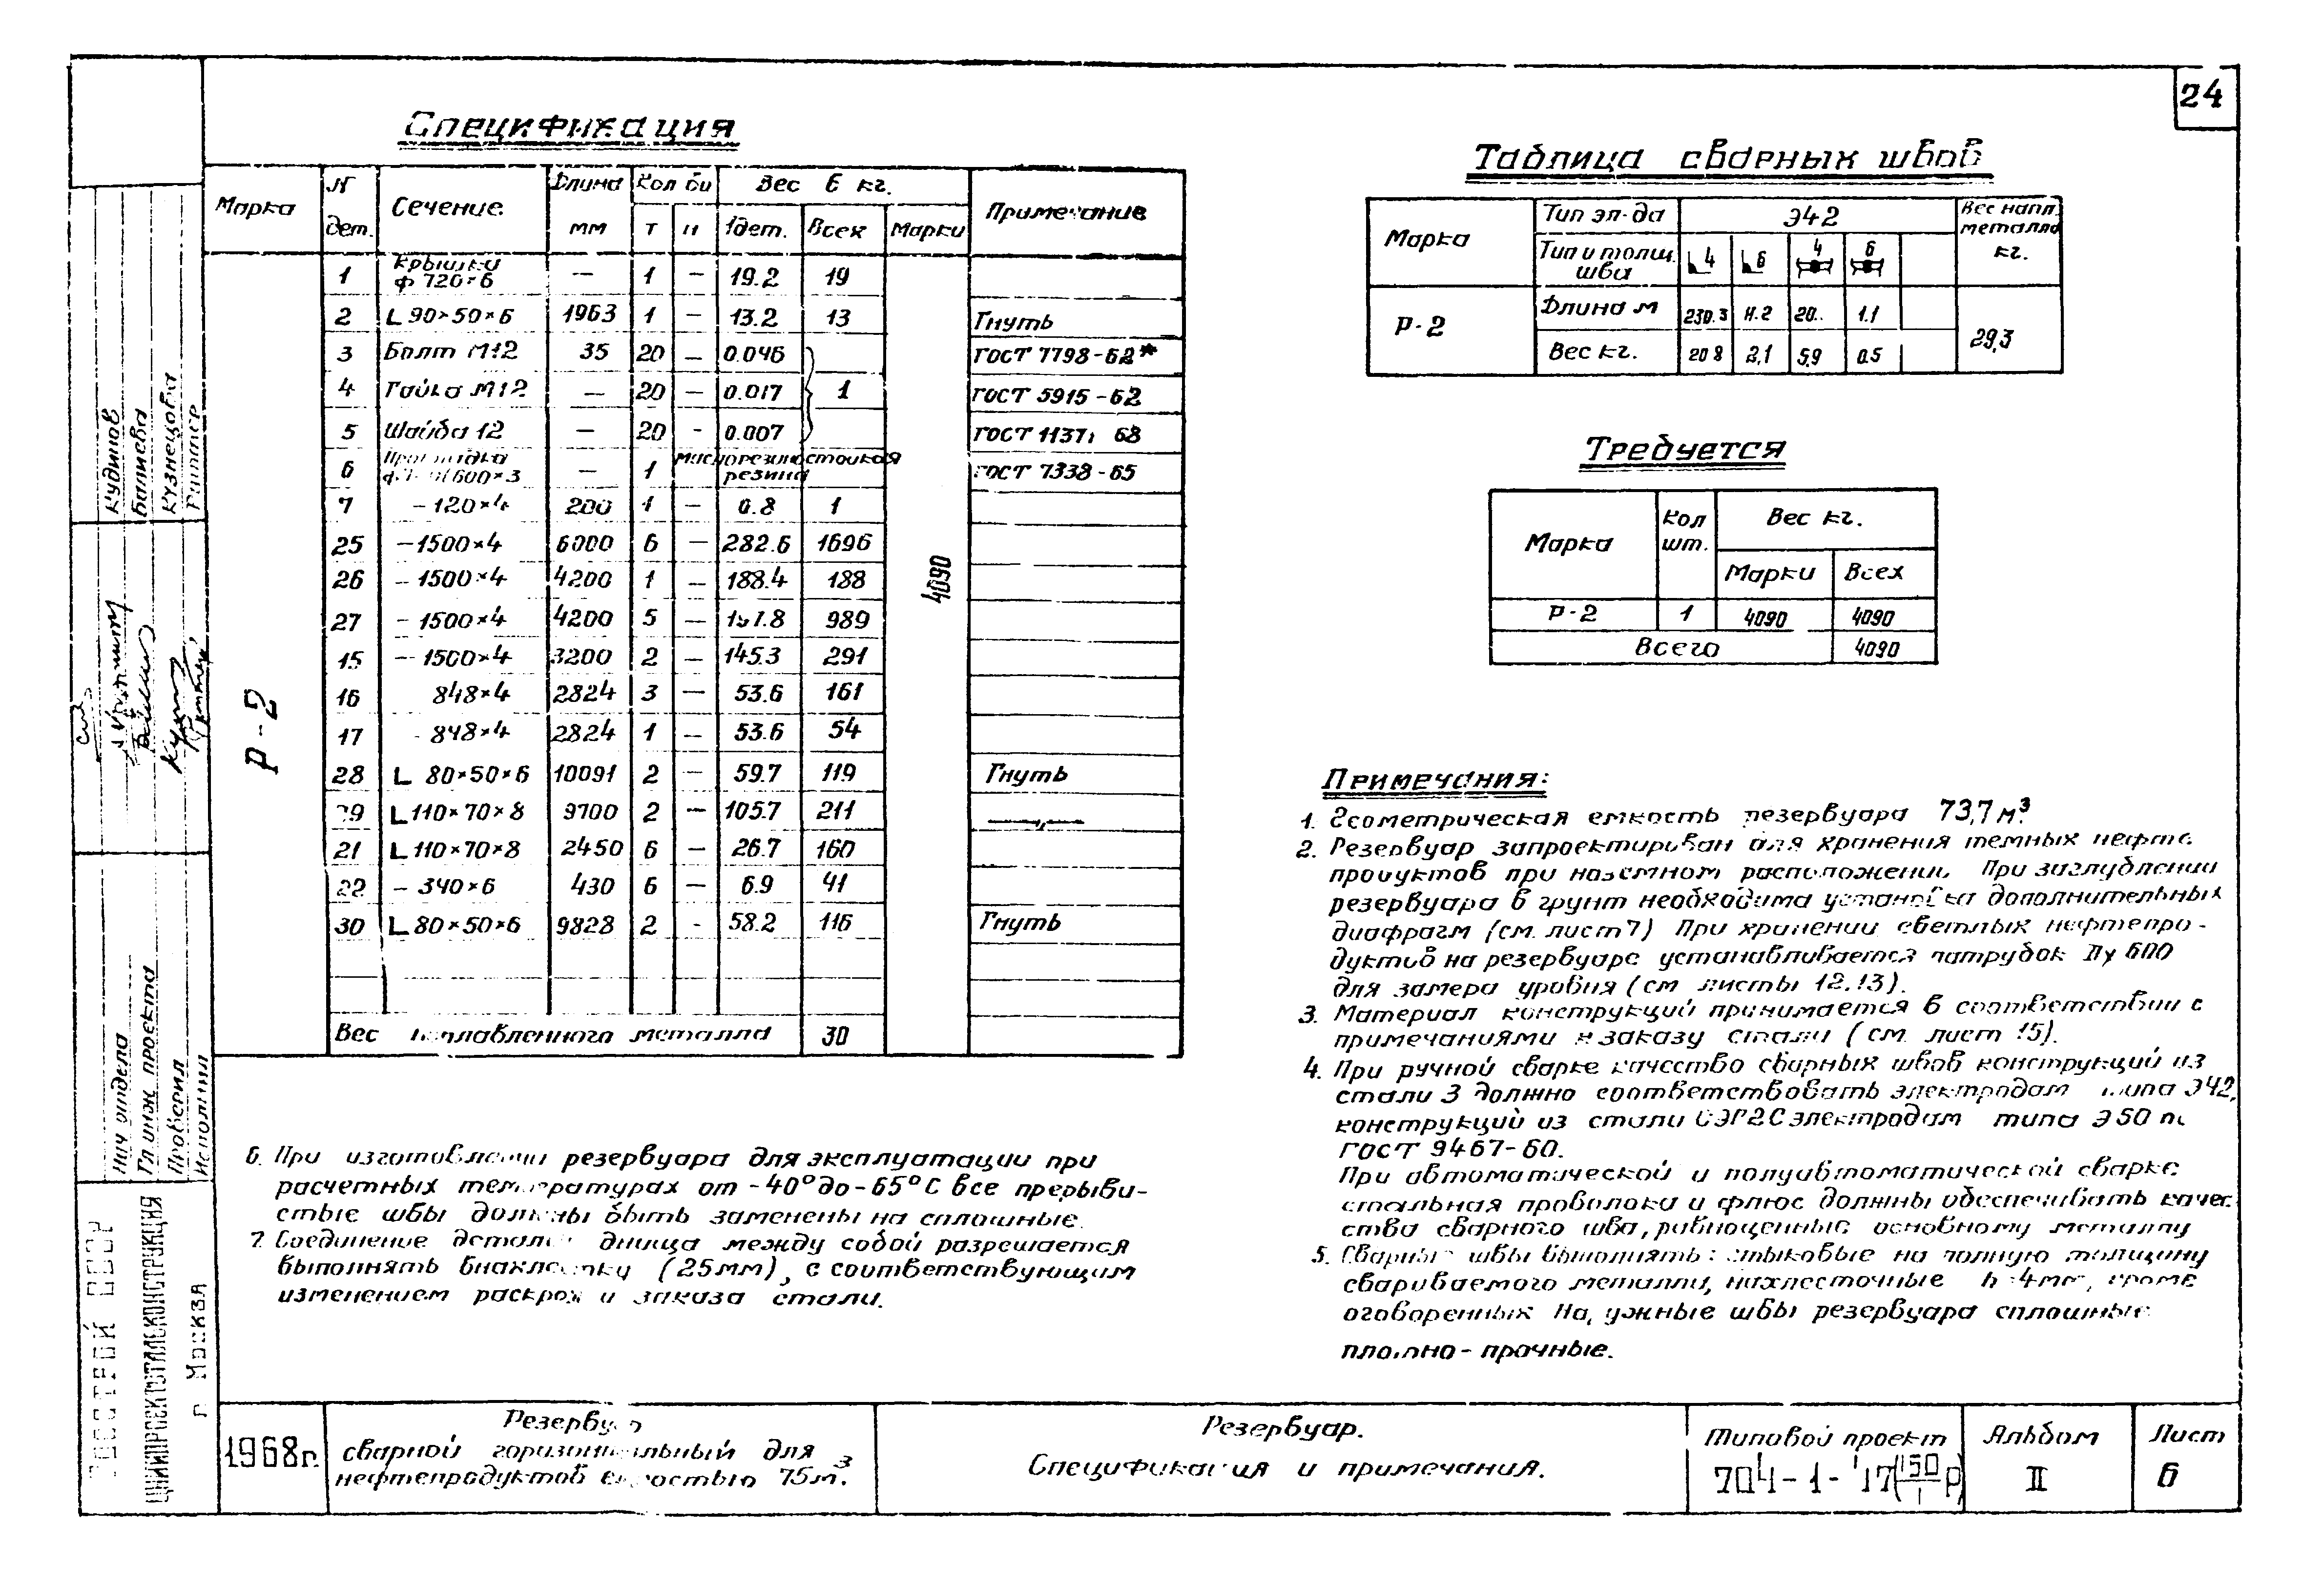 24
Спецификация
Марка | № дет. | Сечение | Длина мм | Кол | Вес в кг. | Примечание
т | н | 1дет. | Всех | Марки
Р-2
1 | Крышка ф 720×6 | — | 1 | — | 19.2 | 19
2 | L 90×50×6 | 1963 | 1 | — | 13.2 | 13 | Гнуть
3 | Болт М12 | 35 | 20 | — | 0.046 | ГОСТ 7798-62*
4 | Гайка М12 | — | 20 | — | 0.017 | 1 | ГОСТ 5915-62
5 | Шайба 12 | — | 20 | - | 0.007 | ГОСТ 11371 68
6 | Прокладка 600×3 | — | 1 | резина | ГОСТ 7338-65
7 | -120×4 | 200 | 1 | — | 0.8 | 1
25 | -1500×4 | 6000 | 6 | — | 282.6 | 1696
26 | -1500×4 | 4200 | 1 | — | 188.4 | 188
27 | -1500×4 | 4200 | 5 | — | 989
15 | -1500×4 | 3200 | 2 | — | 145.3 | 291
16 | 848×4 | 2824 | 3 | — | 53.6 | 161
17 | -848×4 | 2824 | 1 | — | 53.6 | 54
28 | L 80×50×6 | 10091 | 2 | — | 59.7 | 119 | Гнуть
L 110×70×8 | 9700 | 2 | — | 105.7 | 211 | —„—
21 | L 110×70×8 | 2450 | 6 | — | 26.7 | 160
22 | -340×6 | 430 | 6 | — | 6.9 | 41
30 | L 80×50×6 | 9828 | 2 | - | 58.2 | 116 | Гнуть
4090
Вес наплавленного металла | 30
Таблица сварных швов
Марка | Тип эл-да | Э42 | Вес напл. металла кг.
Тип и толщ. шва | 4 | 6 | 4 | 6
Р-2 | Длина м | 230.3 | 20.. | 1.1 | 29,3
Вес кг. | 20 8 | 2,1 | 5,9 | 0.5
Требуется
Марка | Кол шт. | Вес кг.
Марки | Всех
Р-2 | 1 | 4090 | 4090
Всего | 4090
Примечания:
1. Геометрическая емкость резервуара 73,7 м³.
2. Резервуар запроектирован для хранения темных нефте
продуктов при наземном расположении. При заглублении
резервуара в грунт необходима установка дополнительных
диафрагм (см. лист 7) При хранении светлых нефтепро-
дуктов на резервуаре устанавливается патрубок Ду 600
для замера уровня (см листы 12, 13).
3. Материал конструкций принимается в соответствии с
примечаниями к заказу стали (см. лист 15).
4. При ручной сварке качество сварных швов конструкций из
стали 3 должно соответствовать электродам типа Э42,
конструкций из стали электродам типа Э50 по
ГОСТ 9467-60.
При автоматической и полуавтоматической сварке
стальная проволока и флюс должны обеспечивать качес
тво сварного шва, равноценные основному металлу
5. Сварные швы выполнять: стыковые на полную толщину
свариваемого металла, нахлесточные h=4мм, кроме
оговоренных. Наружные швы резервуара сплошные
плотно-прочные.
6. При изготовлении резервуара для эксплуатации при
расчетных температурах от -40° до -65°С все прерыви-
стые швы должны быть заменены на сплошные.
7. Соединение деталей днища между собой разрешается
выполнять внахлестку (25мм), с соответствующим
изменением раскроя и заказа стали.
Кудинов
Кузнецова
Нач отдела
Гл. инж. проекта
Проверил
Исполнил
ГОССТРОЙ СССР
ЦНИИПРОЕКТСТАЛЬКОНСТРУКЦИЯ
г. Москва
1968г.
Резервуар
сварной горизонтальный для
нефтепродуктов емкостью 75м³.
Резервуар.
Спецификация и примечания.
Типовой проект
704-1-
Альбом
II
Лист
6